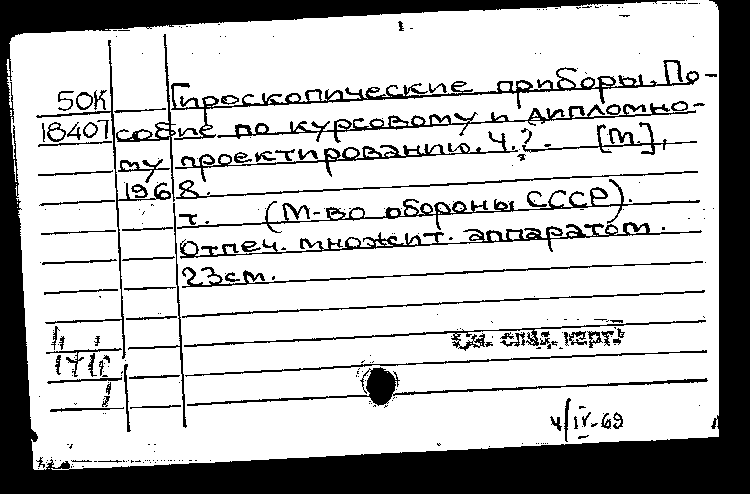 1.
50К Гироскопические приборы. По-
18407 собие по курсовому и дипломно-
му проектированию. Ч.?. [М.],
1968.
т. (М-во обороны СССР).
Отпеч. множит. аппаратом.
23см.
См. след. карт.
4/IV-69